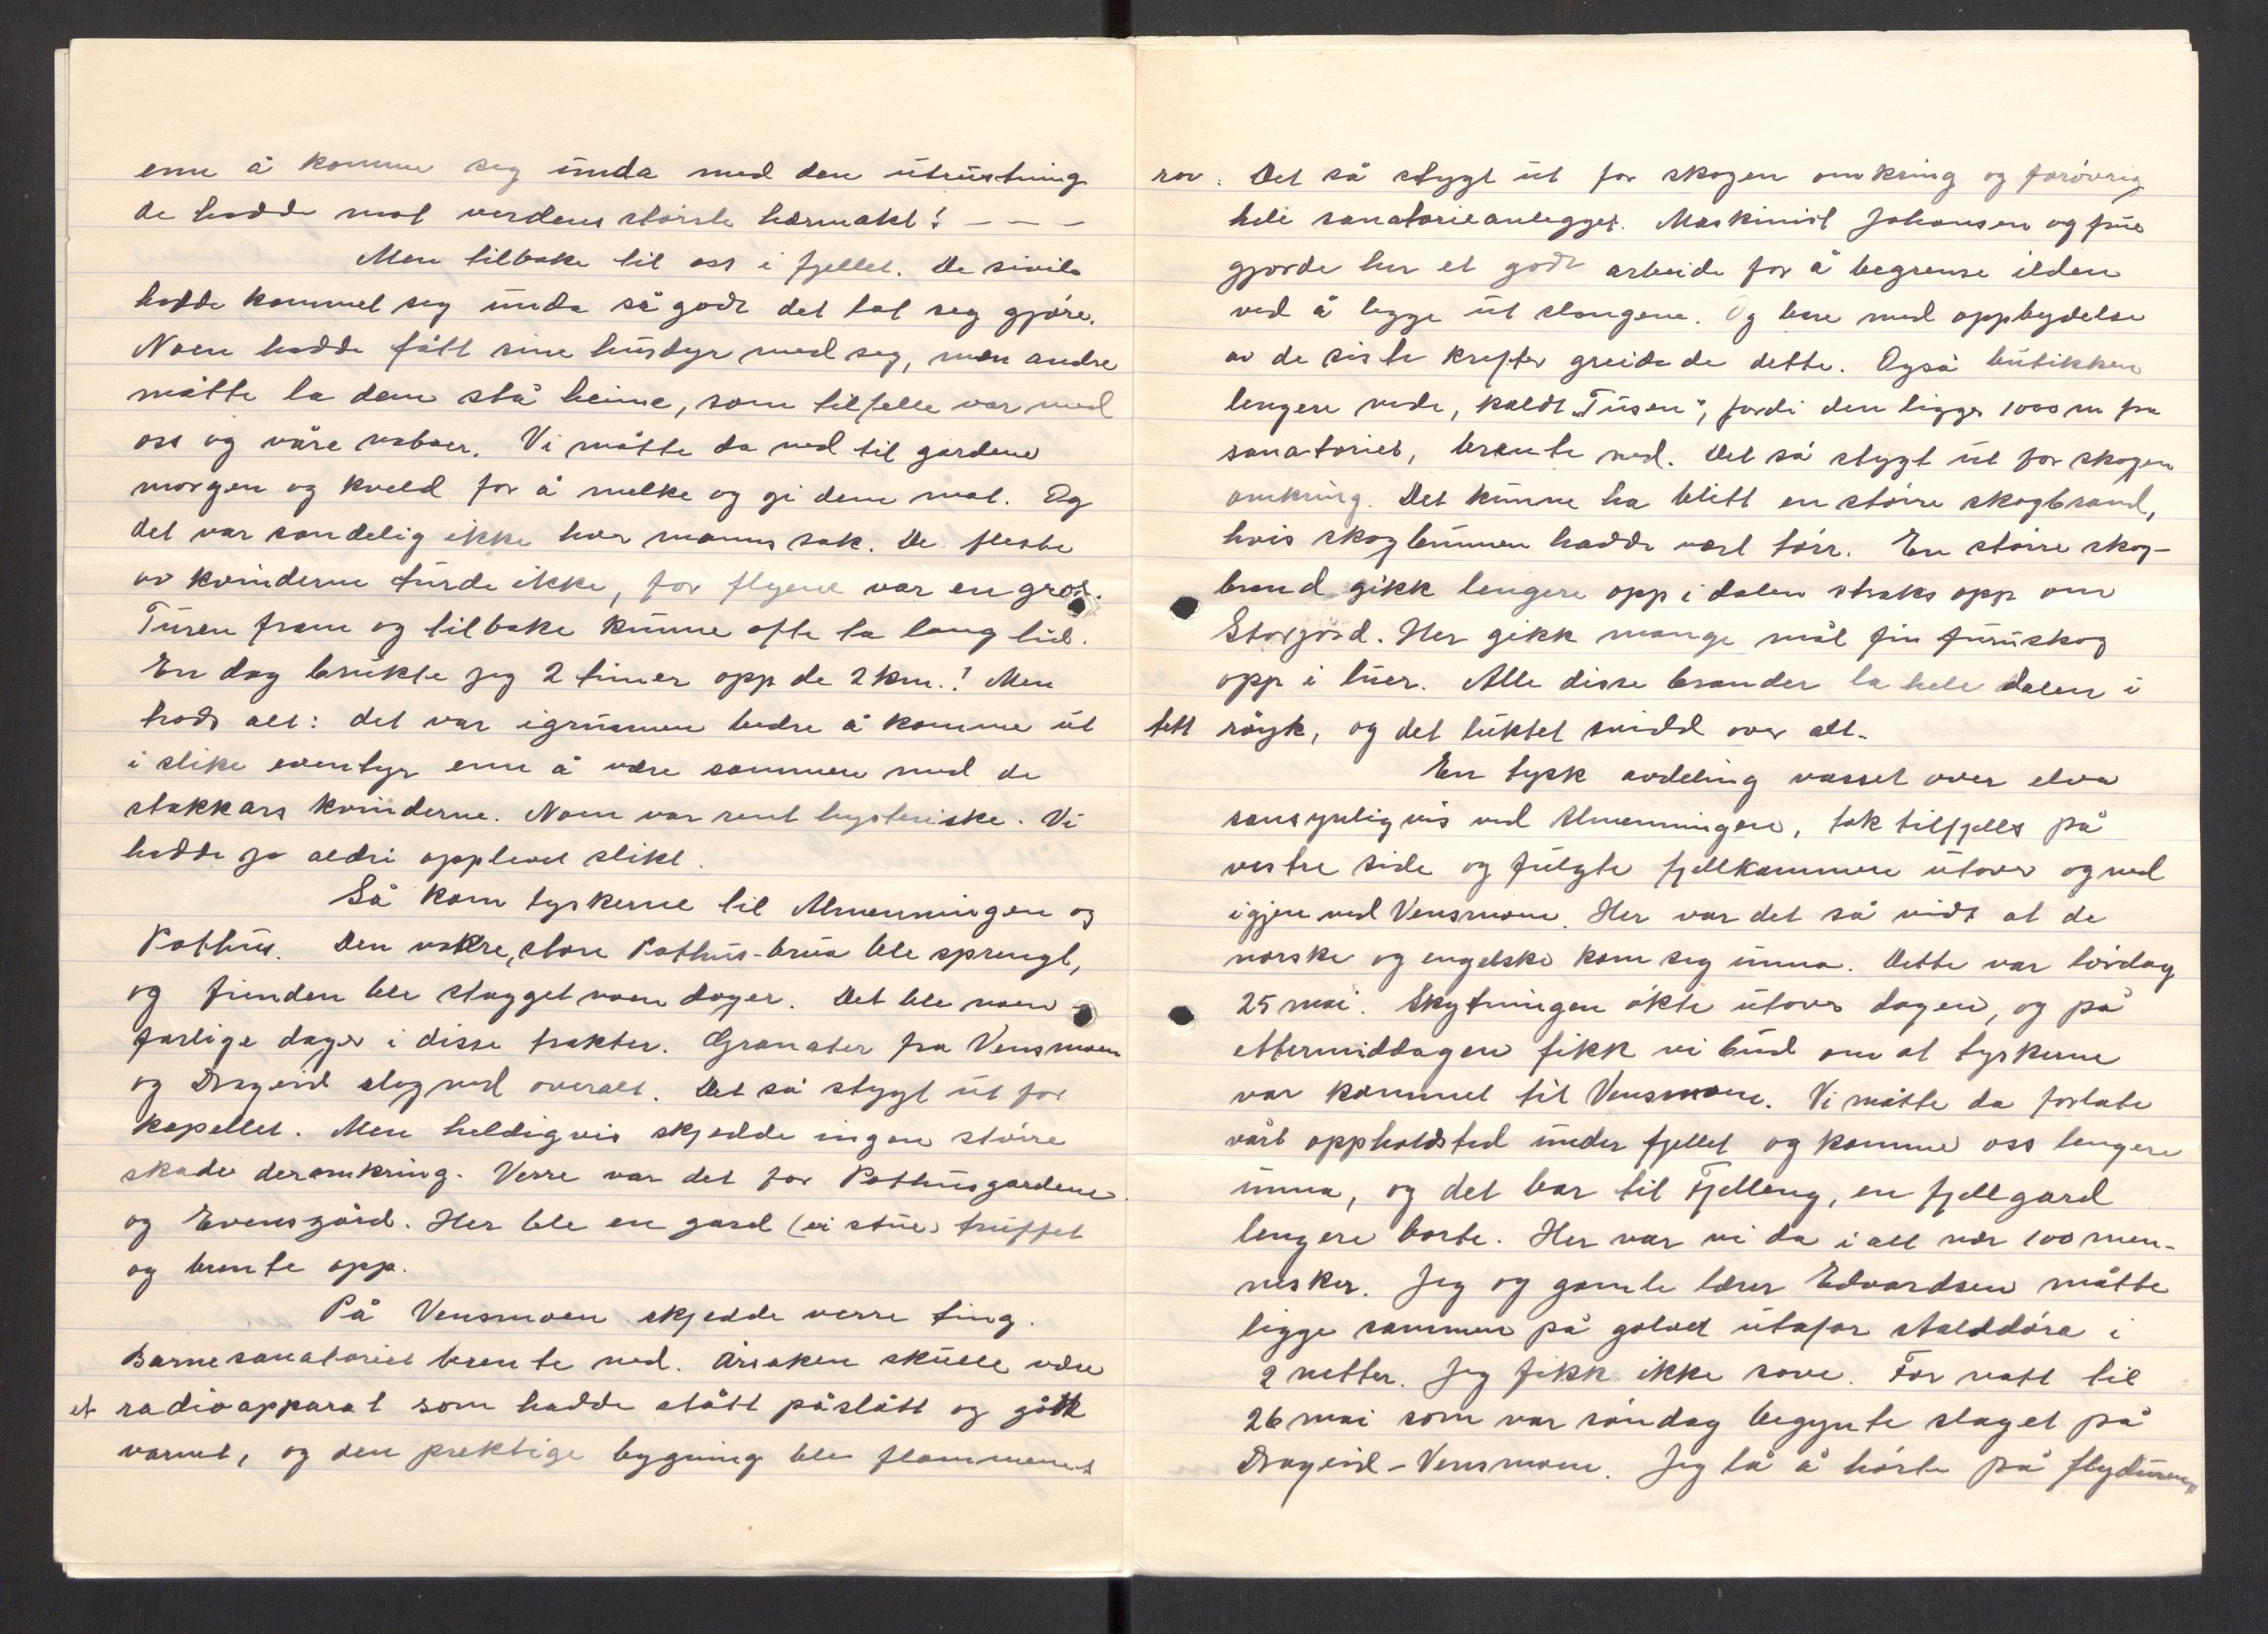 enn å komme seg unda med den utrustning
de hadde mot verdens störste hærmakt! - - -
Men tilbake til oss i fjellet. De sivile
hadde kommet seg unda så godt det lot seg gjöre.
Noen hadde fått sine husdyr med seg, men andre
måtte la dem stå heime, som tilfelle var med
oss og våre naboer. Vi måtte da ned til gardene
morgen og kveld for å melke og gi dem mat. Og
det var sandelig ikke hver manns sak. De fleste
av kvinderne turde ikke, for flyene var en gros.
Turen fram og tilbake kunne ofte ta lang tid.
En dag brukte jeg 2 timer opp de 2 km.! Men
trods alt: det var igrunnen bedre å komme ut
i slike eventyr enn å være sammen med de
stakkars kvinderne. Noen var rent hysteriske. Vi
hadde jo aldri opplevet slikt.
Så kom tyskerne til Almenningen og
Pothus. Den vakre, store Pothus-brua ble sprengt,
og fienden ble stagget noen dager. Det ble noen
farlige dager i disse trakter. Granater fra Vensmoen
og Drageid slog ned overalt. Det så stygt ut for
kapellet. Men heldigvis skjedde ingen större
skade deromkring. Verre var det for Pothusgardene
og Evensgård. Her ble en gard (ei stue) truffet
og brente opp.
På Vensmoen skjedde verre ting.
Barnesanatoriet brente ned. Årsaken skulle være
et radioapparat som hadde stått påslått og gått
varmt, og den prektige bygning ble flammenes
rov. Det så stygt ut for skogen omkring og forövrig
hele sanatorieanlegget. Maskinist Johansen og frue
gjorde her et godt arbeide for å begrense ilden
ved å legge ut slangene. Og bare med oppbydelse
av de siste krefter greide de dette. Også butikken
lengere nede, kaldt "Tusen", fordi den ligger 1000 m fra
sanatoriet, brente ned. Det så stygt ut for skogen
omkring. Det kunne ha blitt en större skogbrand,
hvis skogbunnen hadde vært törr. En större skog-
brand gikk lengere opp i dalen straks opp om
Storjord. Her gikk mange mål fin furuskog
opp i luer. Alle disse brander la hele dalen i
tett röyk, og det luktet svidd over alt.
En tysk avdeling vasset over elva
sansynligvis ved Almenningen, tok tilfjells på
vestre side og fulgte fjellkammene utover og ned
igjen ved Vensmoen. Her var det så vidt at de
norske og engelske kom seg unna. Dette var lördag
25 mai. Skytningen ökte utover dagen, og på
ettermiddagen fikk vi bud om at tyskerne
var kommet til Vensmoen. Vi måtte da forlate
vårt oppholdsted under fjellet og komme oss lengere
unna, og det bar til Fjelleng, en fjellgard
lengere borte. Her var vi da i alt nær 100 men-
nesker. Jeg og gamle lærer Edvardsen måtte
ligge sammen på golvet utafor stalldöra i
2 netter. Jeg fikk ikke sove. For natt til
26 mai som var söndag begynte slaget på
Drageid-Vensmoen. Jeg lå å hörte på flyduren,